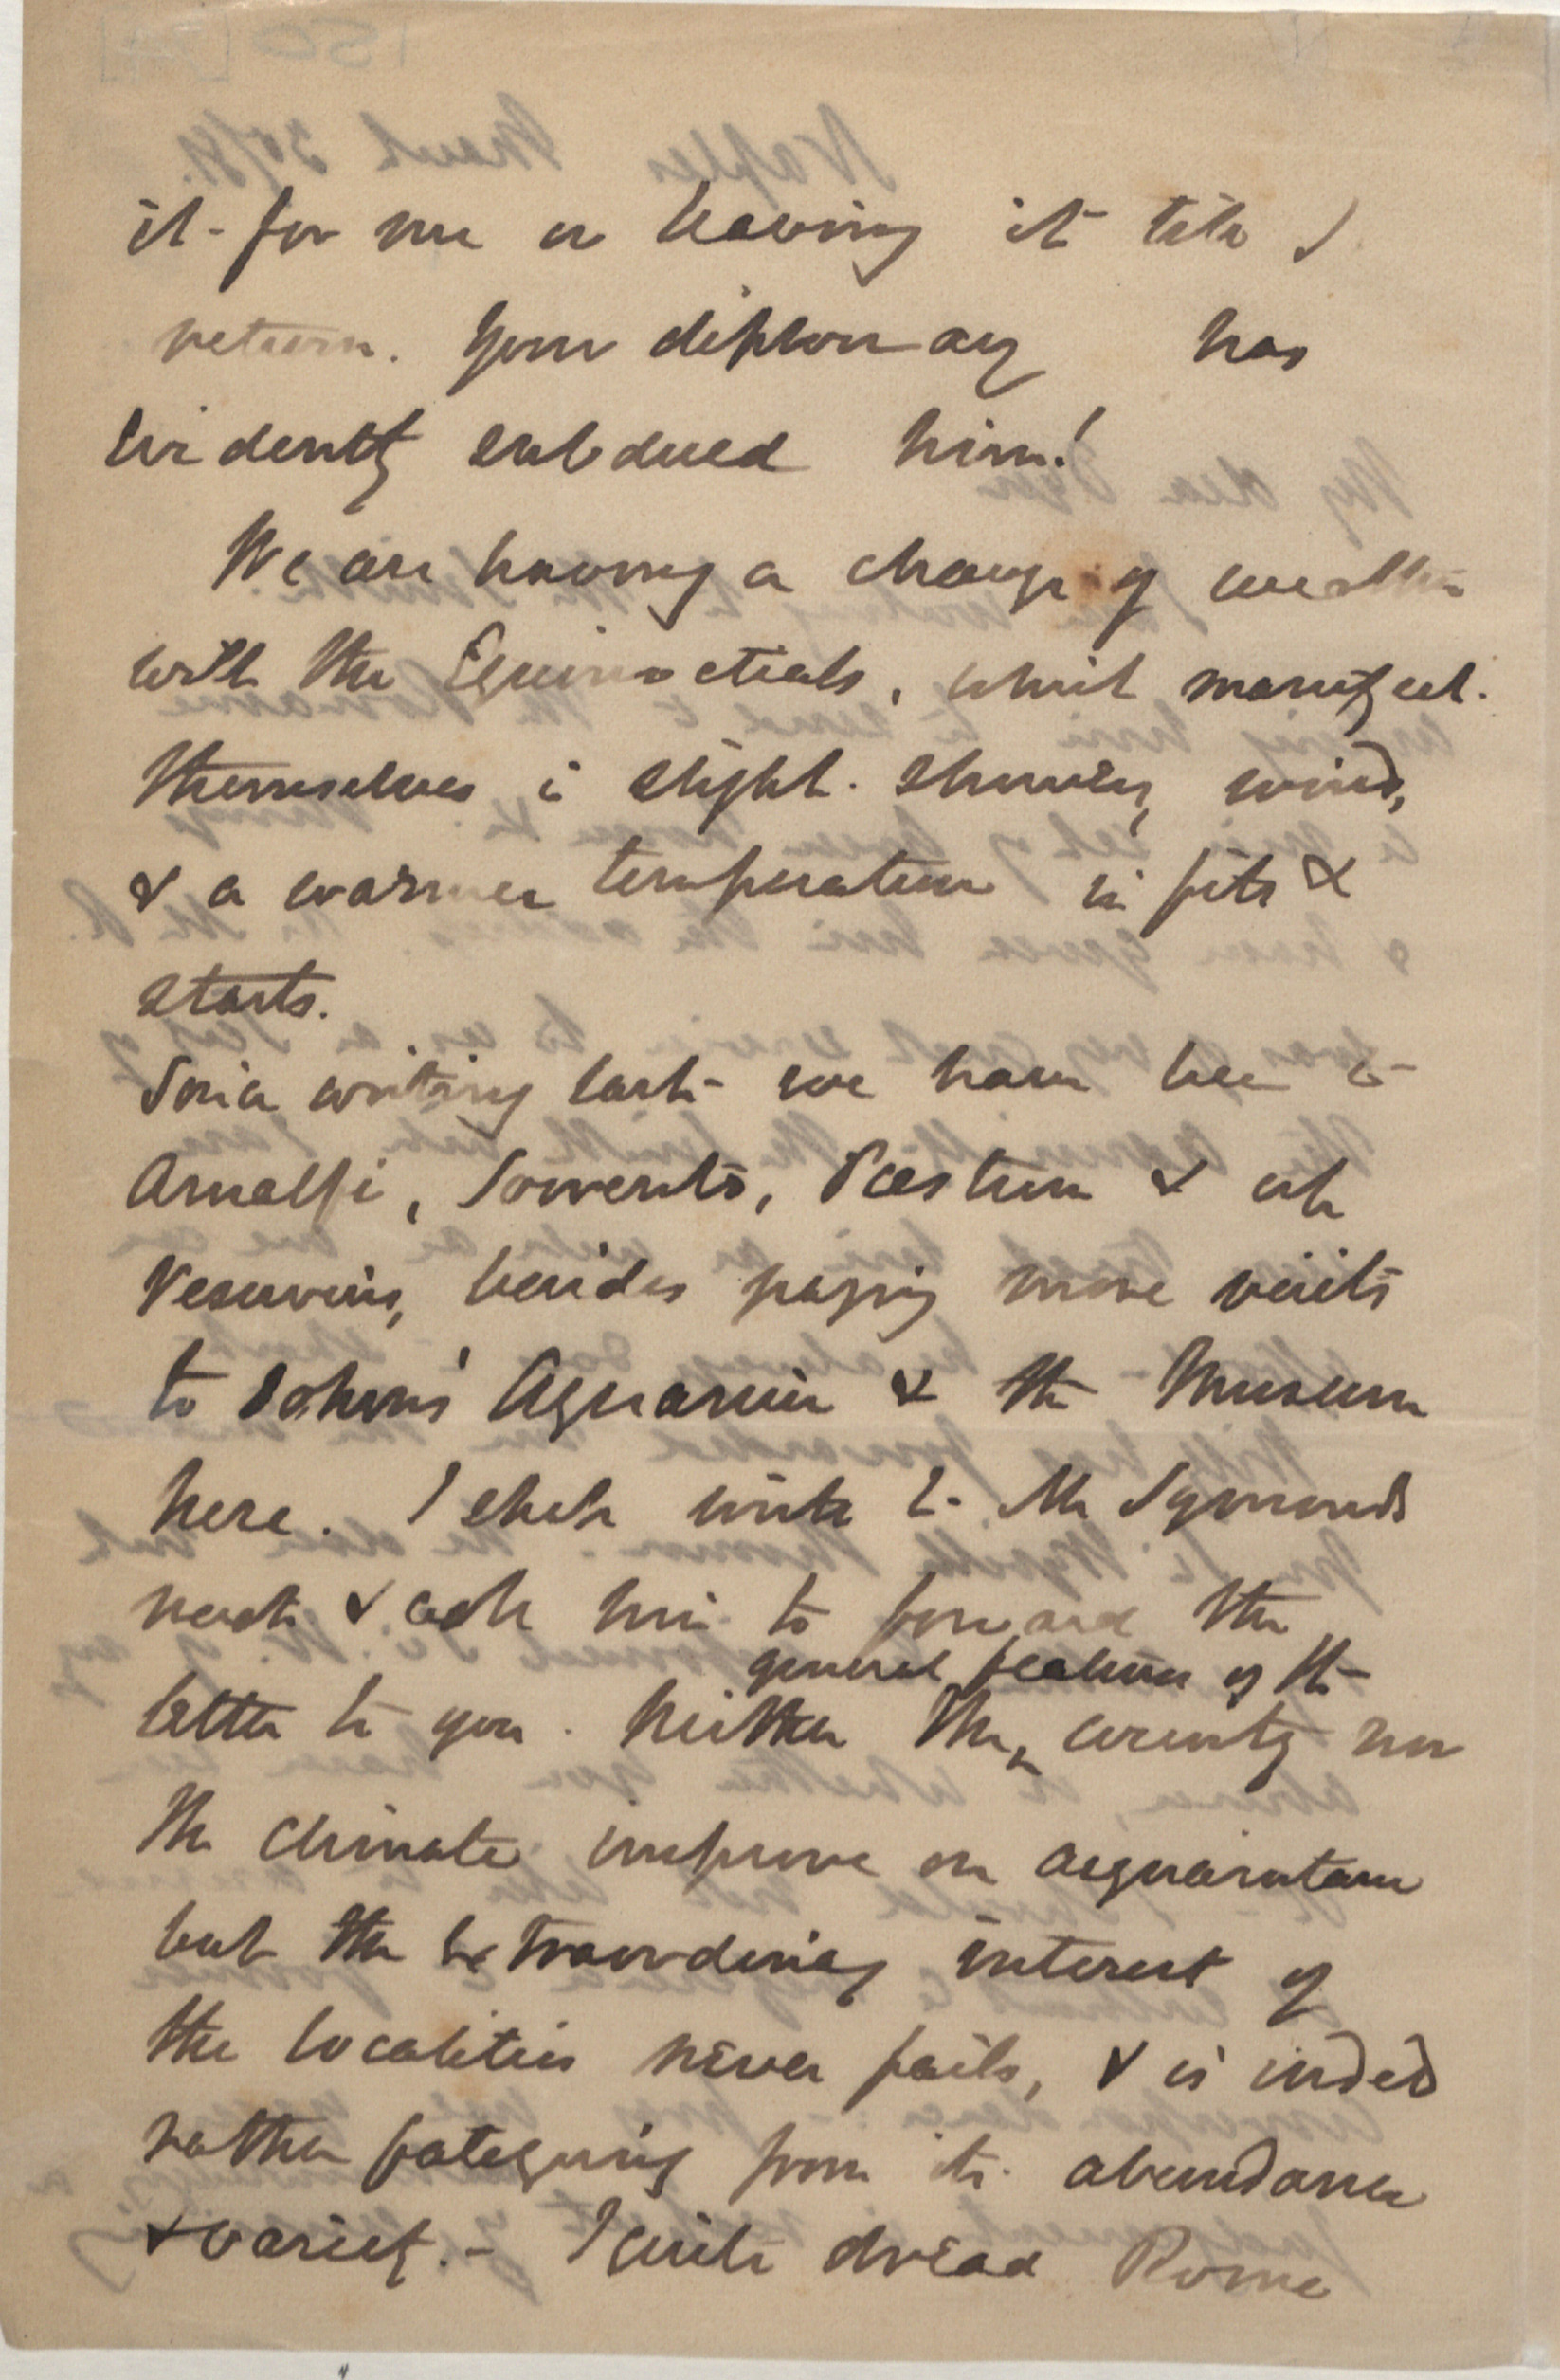 it for me or leaving it till I
return. Your diplomacy has
evidently subdued him!
We are having a change of weather
with the Equinoctials, which manifest
themselves in slight showers, wind,
& a warmer temperature in fits &
starts.
Since writing last we have been to
Amalfi, Sorrento, Pæstum & up
Vesuvius, besides paying more visits
to Dohrn's Aquarium & the Museum
here. I shall write to Mr Symonds
next & ask him to forward the
general features of the
letter to you. Neither the ^ country nor
the climate improve on acquaintance
but the extraordinary interest of
the localities never fails, & is indeed
rather fatiguing from its abundance
& variety. - I quite dread Rome